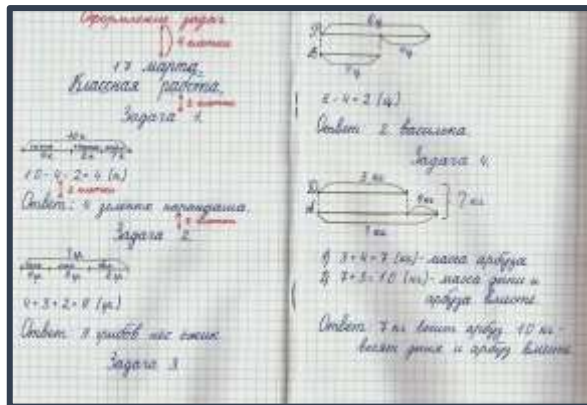 Оформление задач
4 клетки
17 марта.
Классная работа.
2 клетки
Задача 1.
10 к.
4 к. 2 к. ? к.
10-4-2=4 (к)
2 клетки
Ответ: 4 зеленых карандаша.
2 клетки
Задача 2.
4+3+2=9 (гр)
Ответ: 9 грибов нес ёжик
Задача 3
6 ц
Р
В
4 ц
? ц
6-4=2 (ц)
Ответ: 2 василька
Задача 4.
3 кг
Д
4 кг
? кг
А
? кг
1) 3+4=7 (кг)- масса арбуза
2) 7+3=10 (кг)- масса дыни и
арбуза вместе
Ответ 7 кг весит арбуз 10 кг-
весят дыня и арбуз вместе